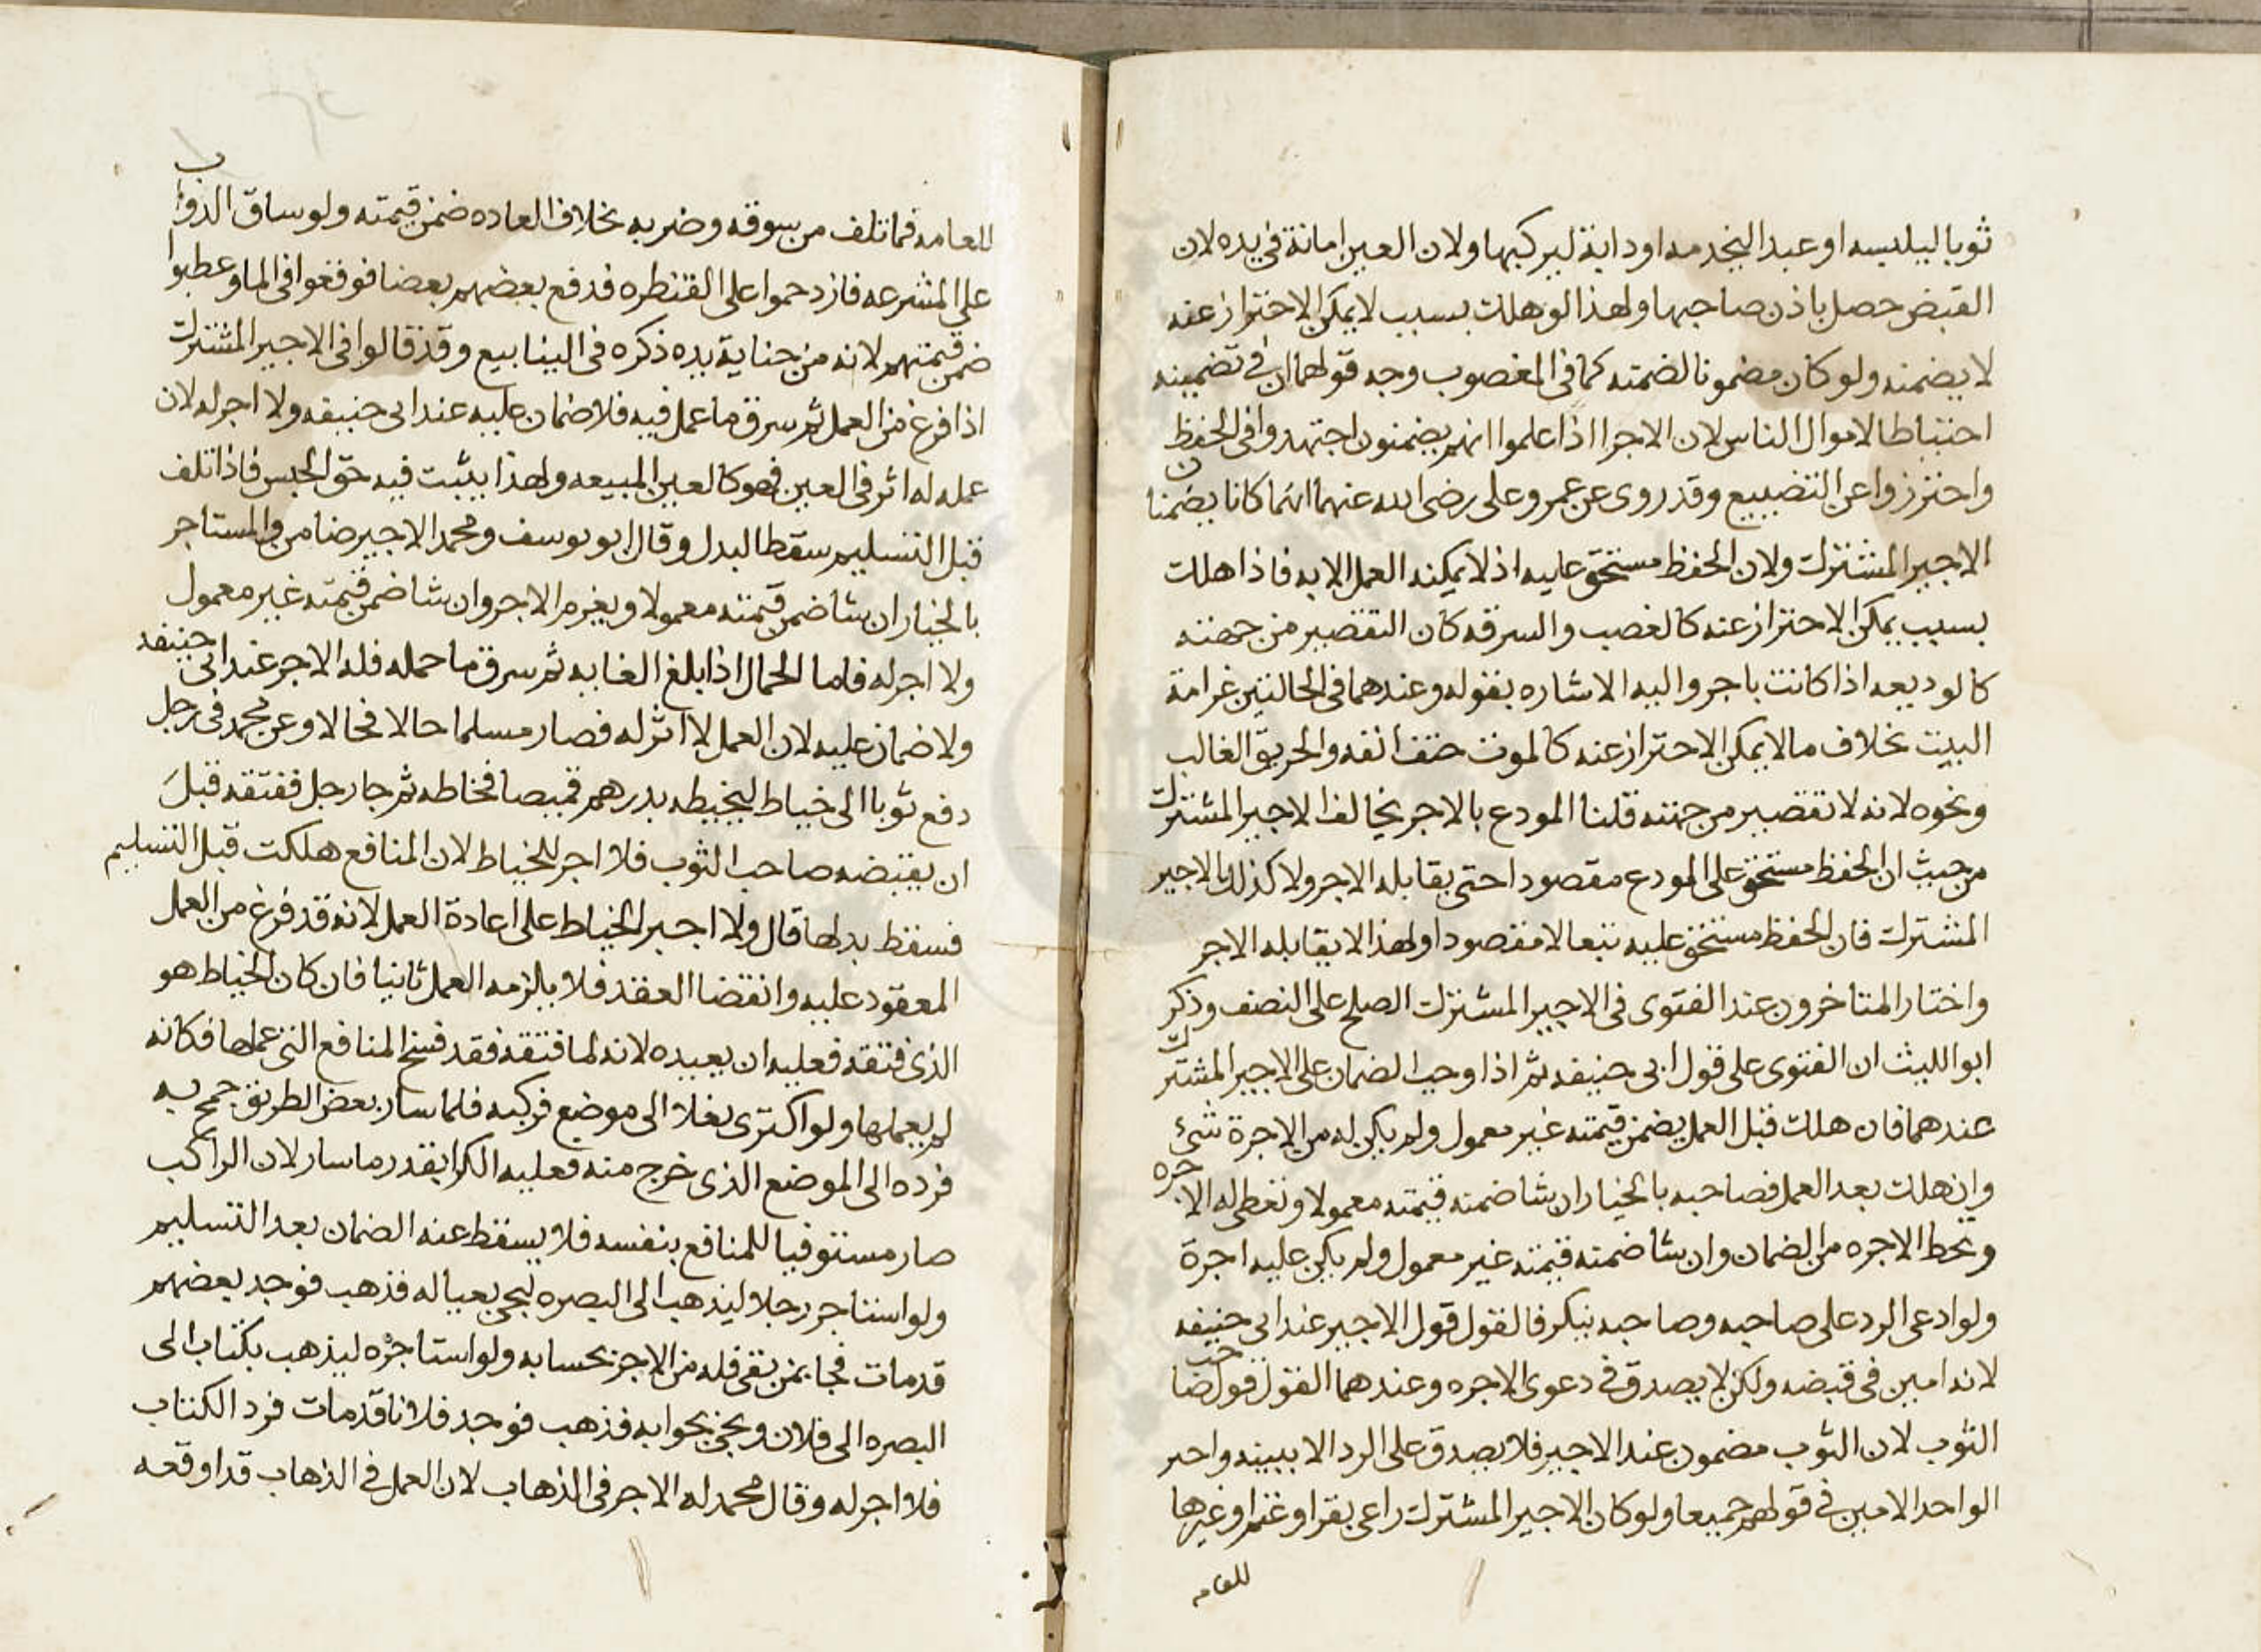 ثوبا ليلبسه او عبدا ليخدمه او دابة ليركبها ولان العين امانة في يده لان
القبض حصل باذن صاحبها ولهذا لو هلك بسبب لا يمكن الاحتراز عنه
لا يضمنه ولو كان مضمونا لضمنه كما في المغصوب وجه قولهما ان في تضمينه
احتياطا لاموال الناس لان الاجرا اذا علموا انهم يضمنون اجتهدوا في الحفظ
واحترزوا عن التضييع وقد روى عن عمر وعلى رضى الله عنهما انهما كانا يضمنان
الاجير المشترك ولان الحفظ مستحق عليه اذ لا يمكنه العمل الا به فاذا هلك
بسبب يمكن الاحتراز عنه كالغصب والسرقه كان التقصير من جهته
كالوديعه اذا كانت باجر واليه الاشاره بقوله وعندهما في الحالتين غرامة
البيت بخلاف ما لا يمكن الاحتراز عنه كالموت حتف انفه والحريق الغالب
ونحوه لانه لا تقصير من جهته قلنا المودع بالاجر يخالف الاجير المشترك
من حيث ان الحفظ مستحق على المودع مقصودا حتى يقابله الاجر ولا كذلك الاجير
المشترك فان الحفظ مستحق عليه تبعا لا مقصودا ولهذا لا يقابله الاجر
واختار المتاخرون عند الفتوى في الاجير المشترك الصلح على النصف وذكر
ابو الليث ان الفتوى على قول ابى حنيفه ثم اذا وجب الضمان على الاجير المشترك
عندهما فان هلك قبل العمل يضمن قيمته غير معمول ولم يكن له من الاجرة شئ
وان هلك بعد العمل فصاحبه بالخيار ان شا ضمنه قيمته معمولا ونعطى له الاجره
ونحط الاجره من الضمان وان شا ضمنه قيمته غير معمول ولم يكن عليه اجرة
ولو ادعى الرد على صاحبه وصاحبه ينكر فالقول قول الاجير عند ابى حنيفه
لانه امين في قبضه ولكن لا يصدق في دعوى الاجره وعندهما القول قول صاحب
الثوب لان الثوب مضمون عند الاجير فلا يصدق على الرد الا ببينه واجير
الواحد الامين في قولهم جميعا ولو كان الاجير المشترك راعى بقر او غنم او غيرها
للعامه
للعامه فما تلف من سوقه وضربه بخلاف العاده ضمن قيمته ولو ساق الدواب
على المشرعه فازدحموا على القنطره فدفع بعضهم بعضا فوقعوا في الما وعطبوا
ضمن قيمتهم لانه من جناية يده ذكره في الينابيع وقد قالوا في الاجير المشترك
اذا فرغ من العمل ثم سرق ما عمل فيه فلا ضمان عليه عند ابى حنيفه ولا اجر له لان
عمله له اثر في العين فهو كالعين المبيعه ولهذا يثبت فيه حق الحبس فاذا تلف
قبل التسليم سقط البدل وقال ابو يوسف ومحمد الاجير ضامن والمستاجر
بالخيار ان شا ضمن قيمته معمولا ويغرم الاجر وان شا ضمن قيمته غير معمول
ولا اجر له فاما الحمال اذا بلغ الغايه ثم سرق ما حمله فله الاجر عند ابى حنيفه
ولا ضمان عليه لان العمل لا اثر له فصار مسلما حالا فحالا وعن محمد في رجل
دفع ثوبا الى خياط ليخيطه بدرهم قميصا فخاطه ثم جا رجل ففتقه قبل
ان يقبضه صاحب الثوب فلا اجر للخياط لان المنافع هلكت قبل التسليم
فسقط بدلها قال ولا اجبر الخياط على اعادة العمل لانه قد فرغ من العمل
المعقود عليه وانقضا العقد فلا يلزمه العمل ثانيا فان كان الخياط هو
الذى فتقه فعليه ان يعيده لانه لما فتقه فقد فسخ المنافع التى عملها فكانه
لم يعملها ولو اكترى بغلا الى موضع فركبه فلما سار بعض الطريق جمح به
فرده الى الموضع الذى خرج منه فعليه الكرا بقدر ما سار لان الراكب
صار مستوفيا للمنافع بنفسه فلا يسقط عنه الضمان بعد التسليم
ولو استاجر رجلا ليذهب الى البصره ليجى بعياله فذهب فوجد بعضهم
قد مات فجا بمن بقى فله من الاجر بحسابه ولو استاجره ليذهب بكتاب الى
البصره الى فلان ويجى بجوابه فذهب فوجد فلانا قد مات فرد الكتاب
فلا اجر له وقال محمد له الاجر في الذهاب لان العمل في الذهاب قد اوقعه